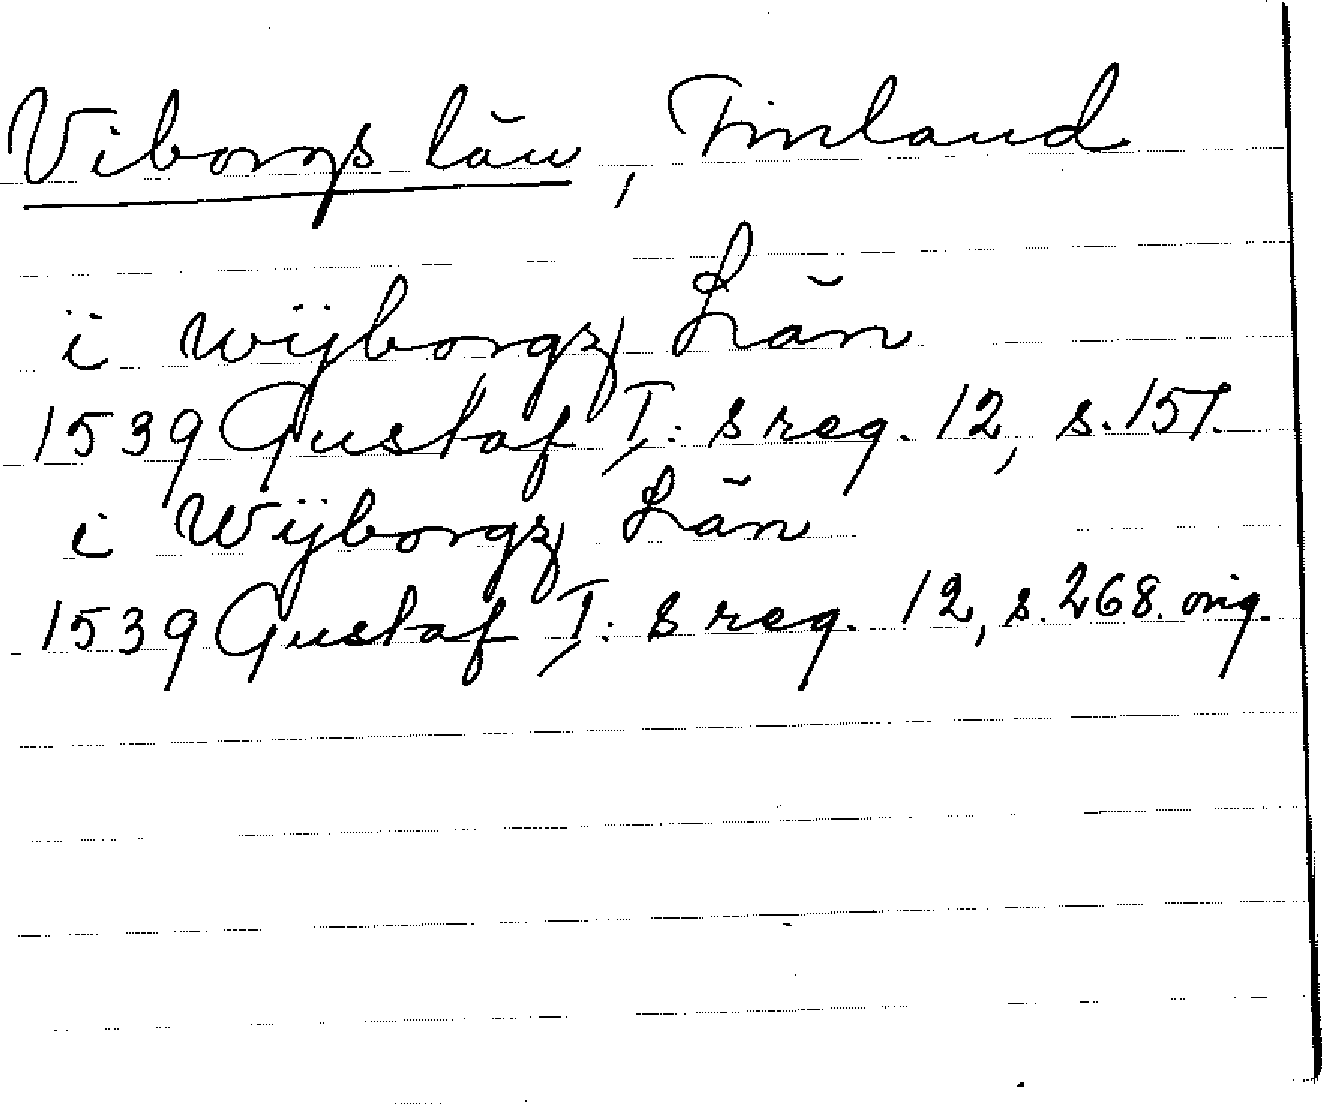 Viborgs län, Finland
i wijborgz Län
1539 Gustaf I:s reg. 12, s. 157.
i Wijborgz Län
1539 Gustaf I:s reg. 12, s. 268. orig.